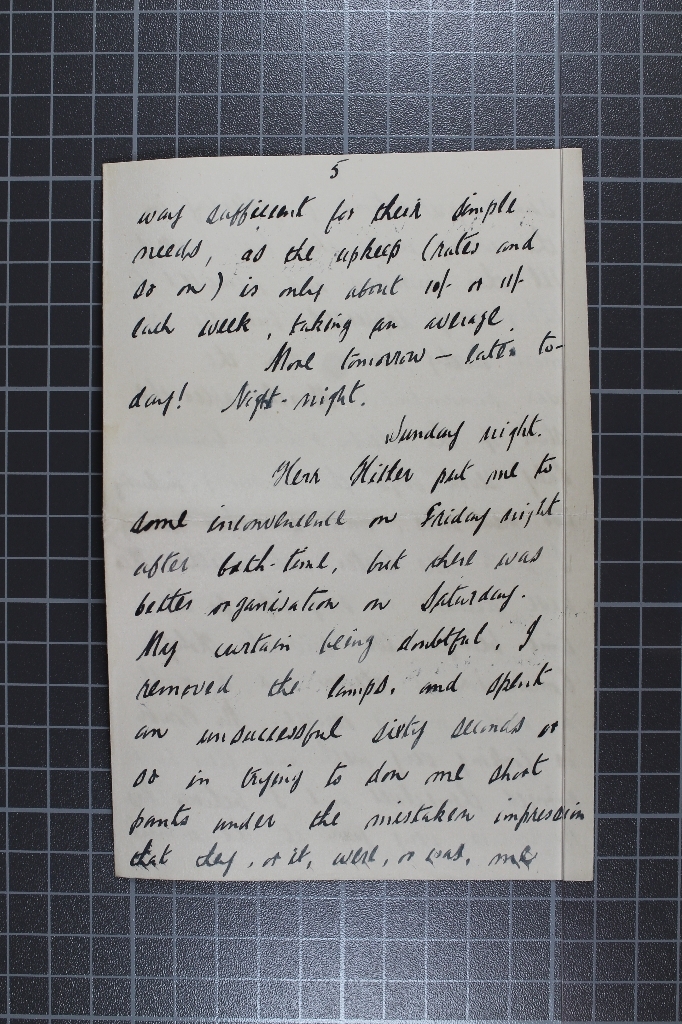 5
way sufficient for their simple
needs, as the upkeep (rates and
so on) is only about 10/- or 11/-
each week, taking an average.
More tomorrow – later to-
day! Night-night.
Sunday night.
Herr Hitler put me to
some inconvenience on Friday night
after bath-time, but there was
better organisation on Saturday.
My curtain being doubtful, I
removed the lamps, and spent
an unsuccessful sixty seconds or
so in trying to don me short
pants under the mistaken impression
that they, or it, were, or was, me